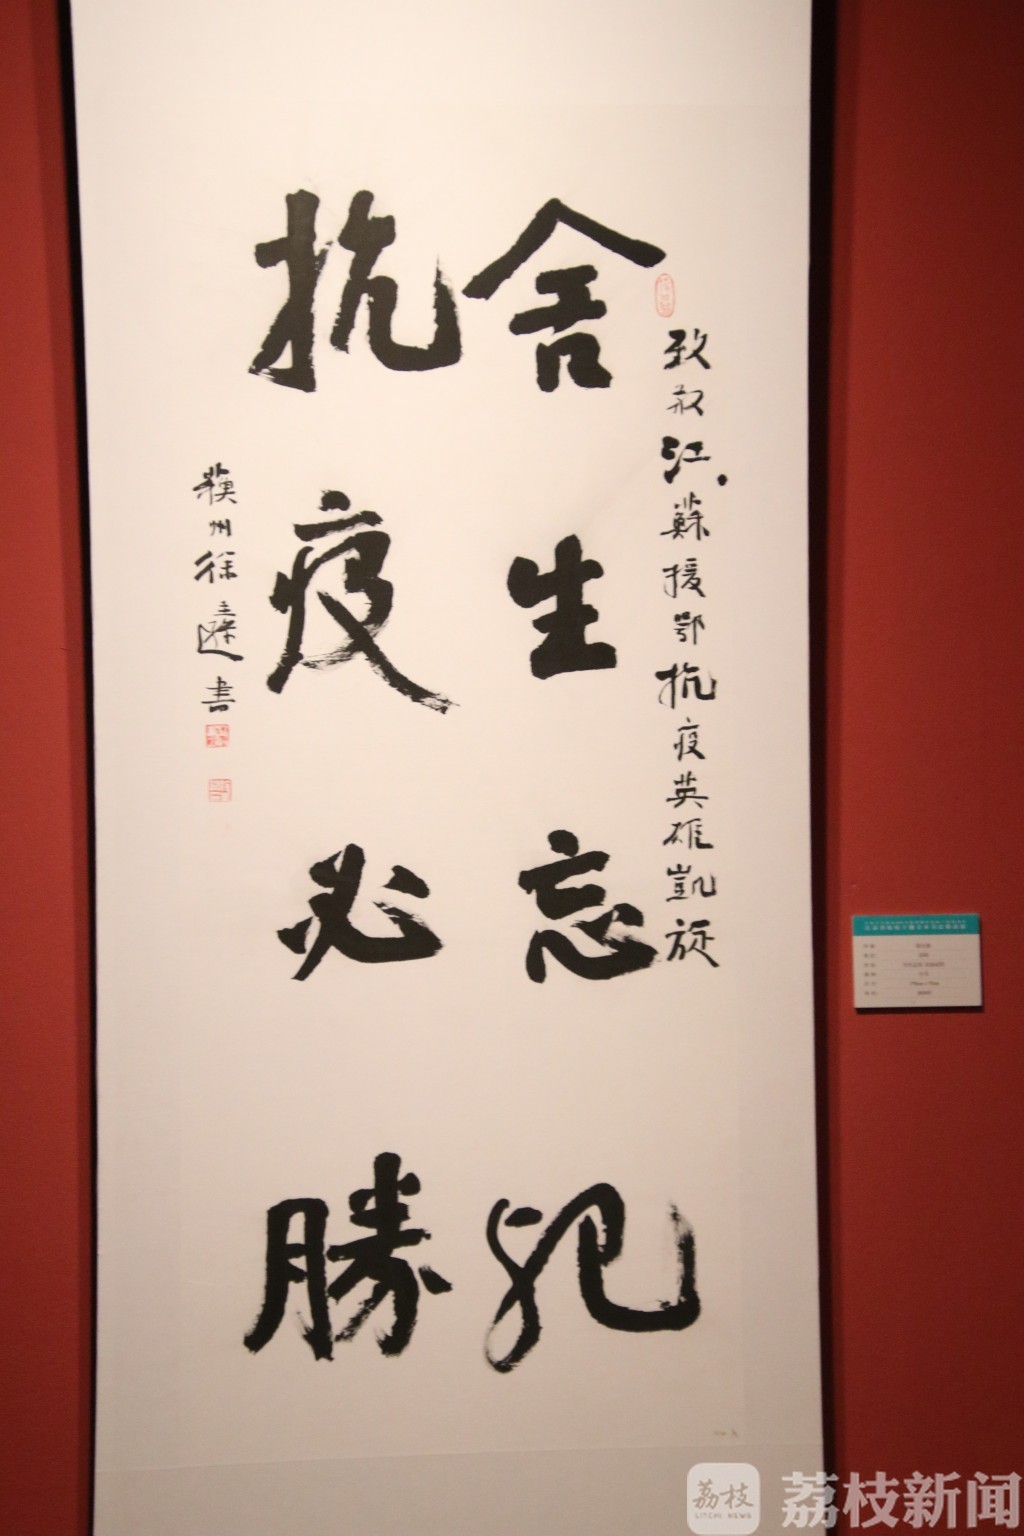 致敬江蘇援鄂抗疫英雄凱旋
舍生忘死
抗疫必勝
蘓州徐書
荔枝
LITCHI NEWS
荔枝新闻